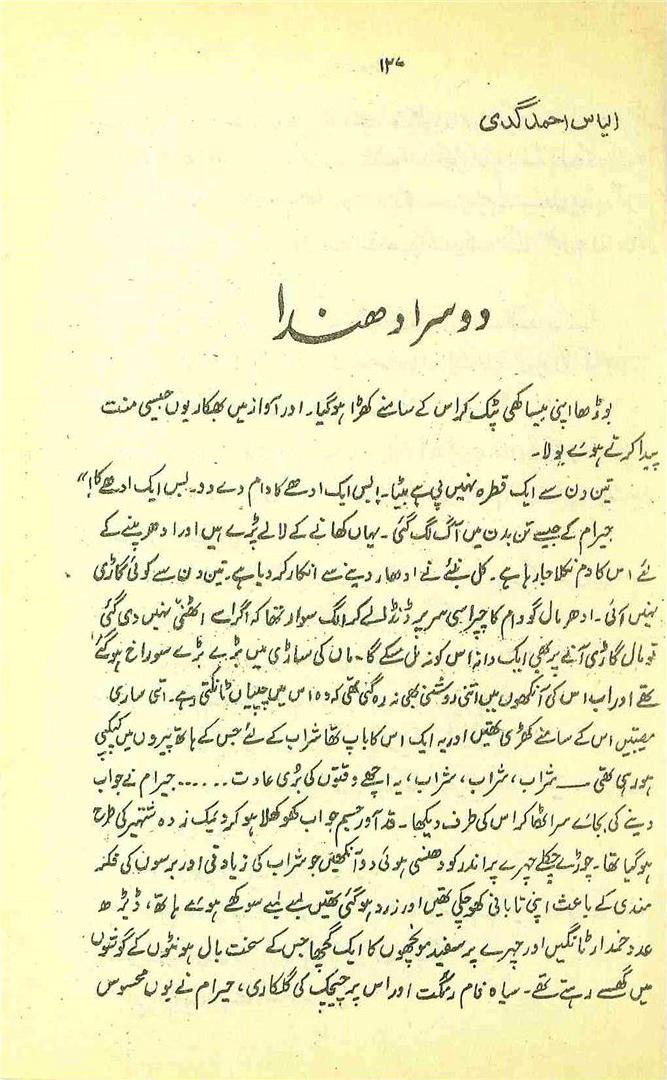 ۱۲۰
الیاس احمد گدی
دوسرا دھندا
بوڑھا اپنی بیساکھی ٹیک کر اس کے سامنے کھڑا ہوگیا۔ اور آواز میں بھکاریوں جیسی منت
پیدا کرتے ہوئے بولا۔
تین دن سے ایک قطرہ نہیں پی ہے بیٹا۔ بس ایک ادھے کا دام دے دو۔ بس ایک ادھے کا!“
جیرام کے جیسے تن بدن میں آگ لگ گئی۔ یہاں کھانے کے لالے پڑے ہیں اور ادھر پینے کے
لئے اس کا دم نکلا جا رہا ہے۔ کل بنئے نے ادھار دینے سے انکار کر دیا ہے۔ تین دن سے کوئی گاڑی
نہیں آئی۔ ادھر مال گودام کا چپراسی سر پر ڈنڈا لے کر الگ سوار تھا کہ اگر اسے اٹھنّی نہیں دی گئی
تو مال گاڑی آنے پر بھی ایک دانہ اس کو نہ مل سکے گا۔ ماں کی ساڑی میں بڑے بڑے سوراخ ہوگئے
تھے اور اب اس کی آنکھوں میں اتنی روشنی بھی نہ رہ گئی تھی کہ وہ اس میں چیپیاں ٹانکتی ہے۔ اتنی ساری
مصیبتیں اس کے سامنے کھڑی تھیں اور یہ ایک اس کا باپ تھا شراب کے لئے جس کے ہاتھ پیروں میں کپکپی
ہو رہی تھی ـــ شراب، شراب، شراب، یہ اچھے وقتوں کی بُری عادت ...... جیرام نے جواب
دینے کی بجائے سر اٹھا کر اس کی طرف دیکھا۔ قد آور جسیم جو اب کھوکھلا ہو کر دیمک زدہ شہتیر کی طرح
ہوگیا تھا۔ چوڑے چکلے چہرے پر اندر کو دھنسی ہوئی دو آنکھیں جو شراب کی زیادتی اور برسوں کی فکر
مندی کے باعث اپنی تابانی کھو چکی تھیں اور زرد ہوگئی تھیں لمبے لمبے سوکھے ہوئے ہاتھ، ڈیڑھ
عدد خمدار ٹانگیں اور چہرے پر سفید مونچھوں کا ایک گچھا جس کے سخت بال ہونٹوں کے گوشوں
میں گھسے رہتے تھے۔ سیاہ فام رنگت اور اس پر چیچک کی گلکاری، جیرام نے یوں محسوس